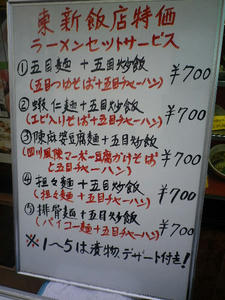 東新飯店特価
ラーメンセットサービス
①五目麺＋五目炒飯 ¥700
(五目つゆそば＋五目チャーハン)
②蝦仁麺＋五目炒飯 ¥700
(エビ入りそば＋五目チャーハン)
③陳麻婆豆腐麺＋五目炒飯 ¥700
(四川風陳マーボー豆腐かけそば
と五目チャーハン)
④担々麺＋五目炒飯 ¥700
(担々麺＋五目チャーハン)
⑤排骨麺＋五目炒飯 ¥700
(パイコー麺＋五目チャーハン)
※1〜5は漬物、デザート付き!